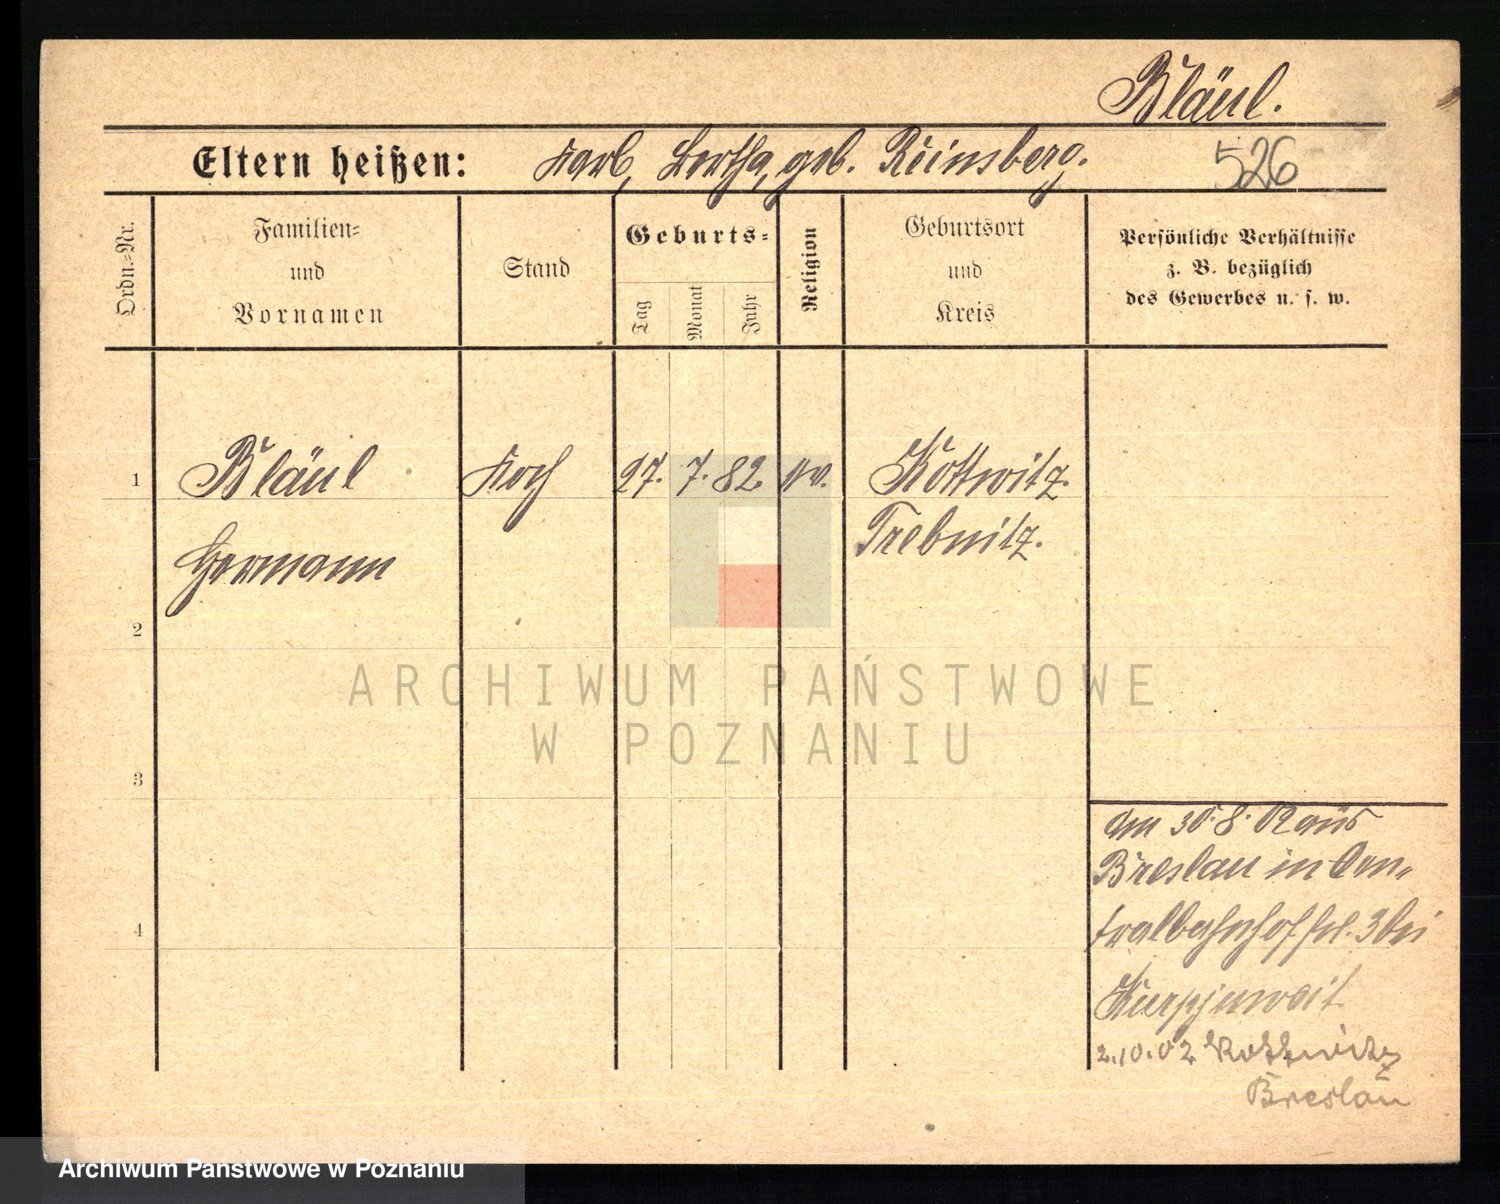 Bläul.
Eltern heißen: Karl, Bertha, geb. Reinsberg. 526
Ordn.-Nr.
Familien-
und
Vornamen
Stand
Geburts-
Tag
Monat
Jahr
Religion
Geburtsort
und
Kreis
Persönliche Verhältnisse
z. B. bezüglich
des Gewerbes u. s. w.
1 Bläul Koch 27. 7. 82. ev. Kottwitz
Hermann Trebnitz.
2
3
4
am 30. 8. 02 aus
Breslau in Cen-
tralbahnhof fr. 3 bei
2.10.02 Kottwitz
Breslau
ARCHIWUM PAŃSTWOWE
W POZNANIU
Archiwum Państwowe w Poznaniu